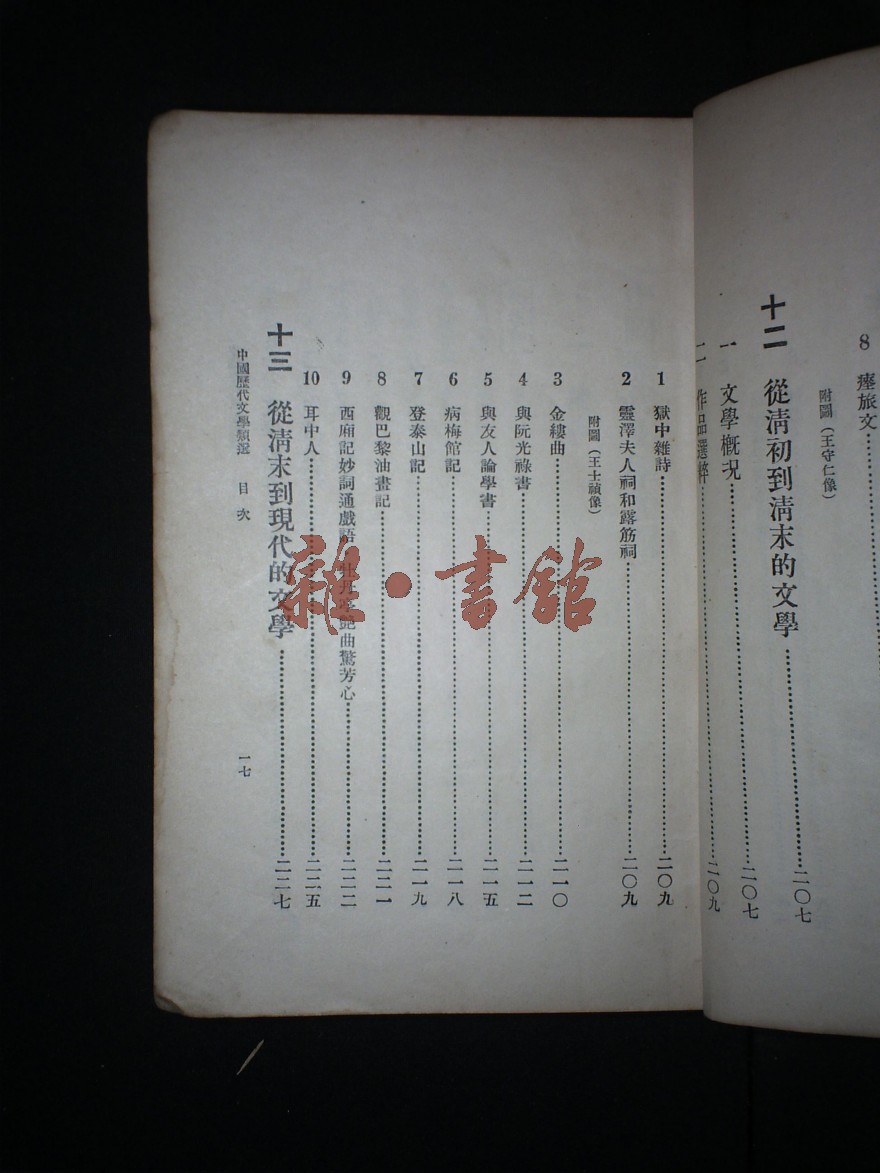 8 瘞旅文
附圖（王守仁像）
十二 從清初到清末的文學……二〇七
一 文學概況……二〇七
二 作品選粹……二〇九
1 獄中雜詩……二〇九
2 靈澤夫人祠和露筋祠……二〇九
附圖（王士禎像）
3 金縷曲……二一〇
4 與阮光祿書……二一二
5 與友人論學書……二一五
6 病梅館記……二一八
7 登泰山記……二一九
8 觀巴黎油畫記……二二一
9 西廂記妙詞通戲語 牡丹亭艷曲驚芳心……二二二
10 耳中人……二二五
十三 從清末到現代的文學……二二七
中國歷代文學類選 目次 一七
雜·書館